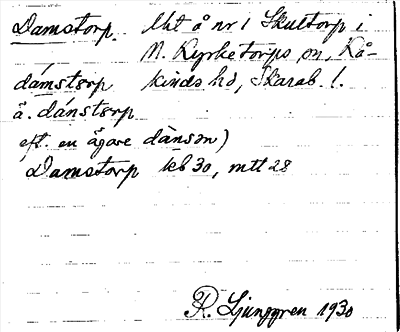 Damstorp. Uht å nr 1 Skultorp i
N. Kyrketorps sn, Kå-
dámstørp kinds hd, Skarab. l.
ä. dánstørp
eft. en ägare dànson)
Damstorp kb 30, mtl 28
R. Ljunggren 1930